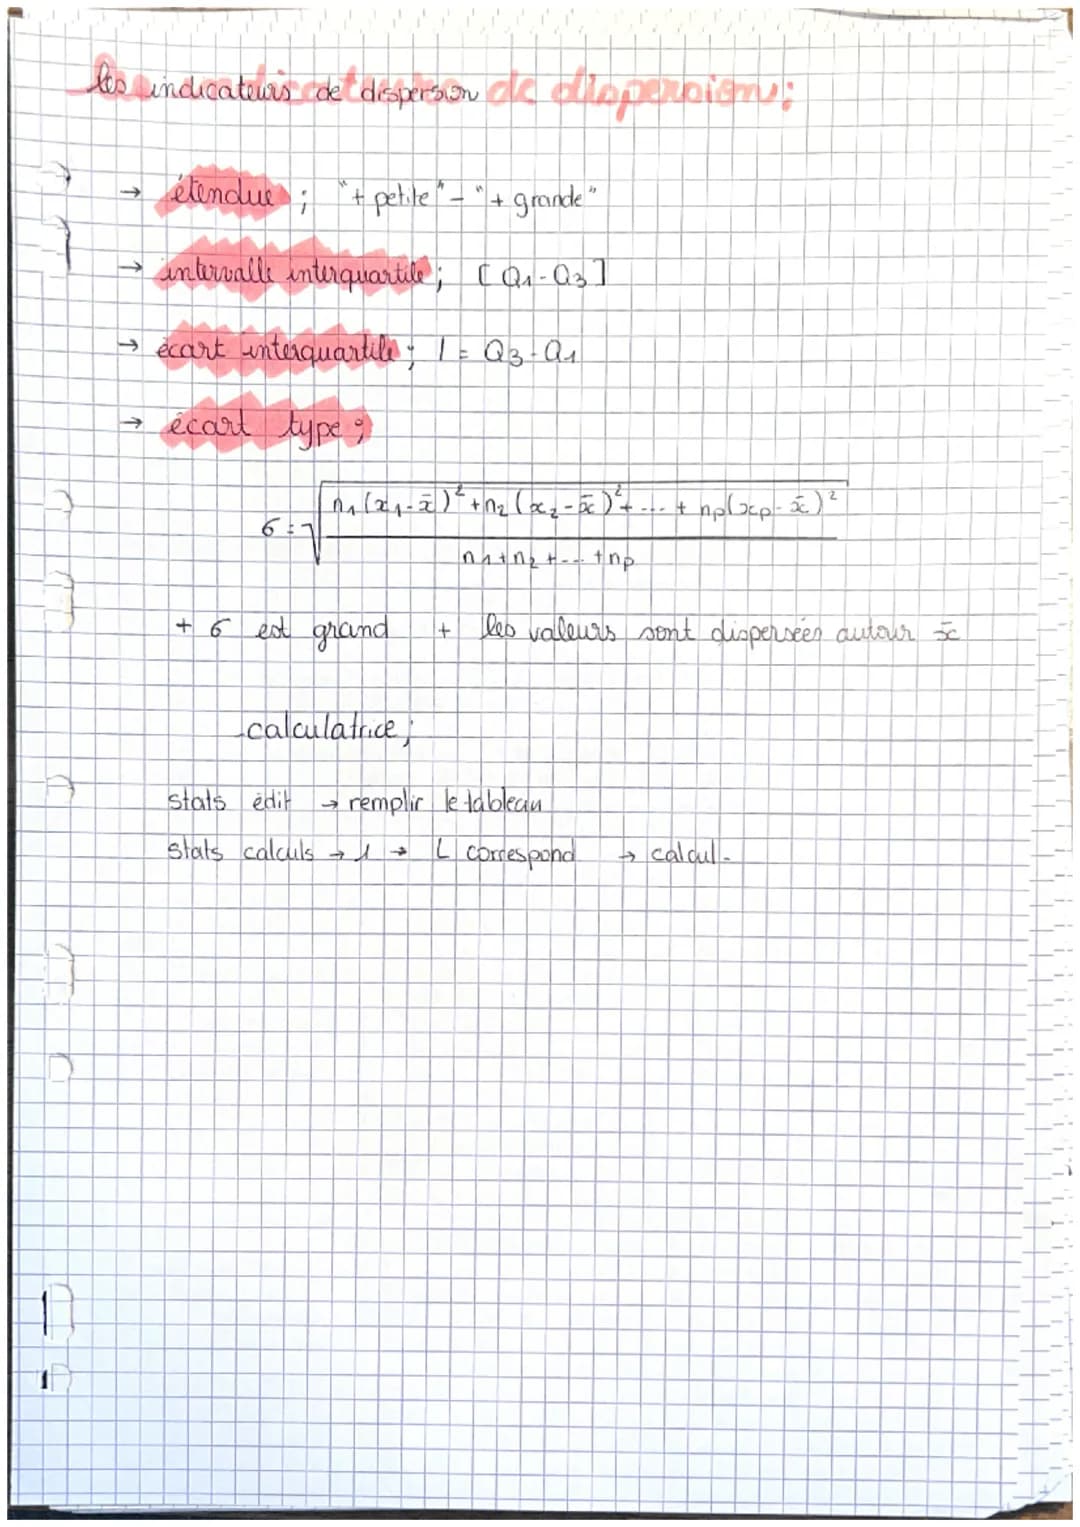 les indicateurs de dispersion de dispersion :
→ étendue ; "+ petite" - "+ grande"
→ intervalle interquartile ; [Q1-Q3]
→ écart interquartile ; I = Q3-Q1
→ écart type ;
σ = √((n1(x1-x̄)²+n2(x2-x̄)²+...+ np(xp-x̄)²)/(n1+n2+...+np))
+ σ est grand + les valeurs sont dispersées autour x̄
calculatrice ;
stats édit → remplir le tableau
stats calculs → 1 → L correspond → calcul.